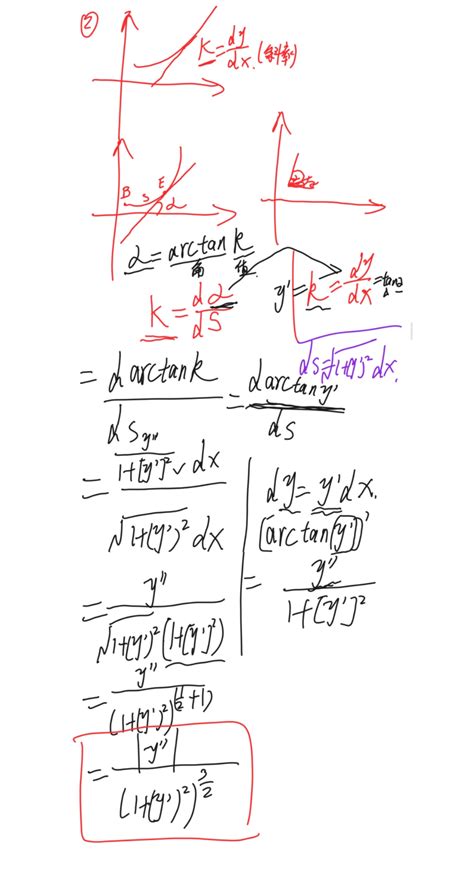 ②
K=dy/dx.(斜率)
B S E α
α=arctan k
角 值
y'=k=dy/dx=tanα
K=dα/dS
ds=√1+(y')² dx.
=d arctan k/dS=d arctan y'/ds
=y''/1+[y']² dx/√1+(y')² dx
dy=y'dx.
[arctan(y')]'
=y''/1+[y']²
=y''/√1+(y')²(1+[y']²)
=y''/(1+(y')²)^(1/2+1)
=|y''|/(1+(y')²)^3/2